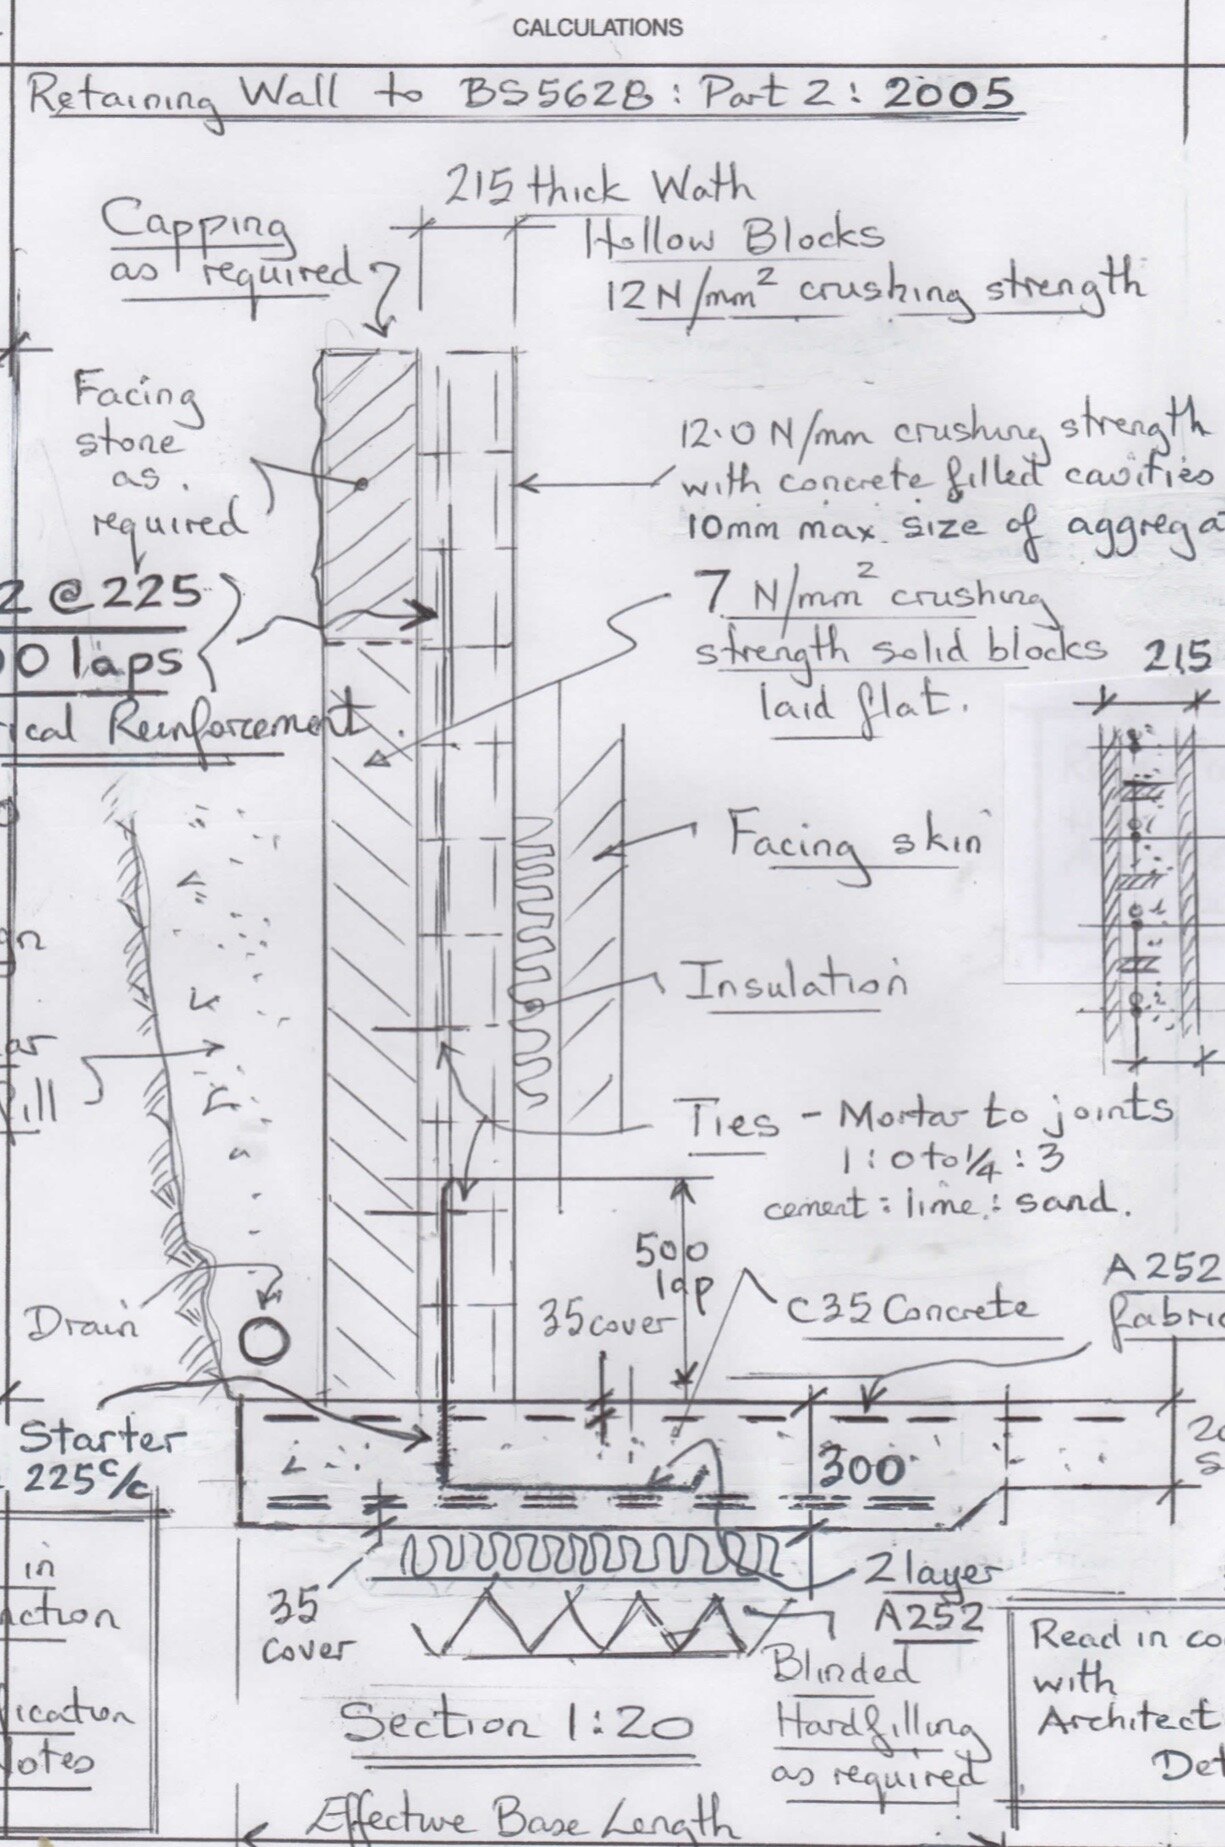 CALCULATIONS
Retaining Wall to BS5628: Part 2: 2005
215 thick Wath
Hollow Blocks
12N/mm² crushing strength
Capping
as required
Facing
stone
as
required
12.0 N/mm crushing strength
with concrete filled cavities
10mm max. size of
2 @ 225
0 laps
Reinforcement
7 N/mm² crushing
strength solid blocks
laid flat.
215
Facing skin
Insulation
Ties - Mortar to joints
1:0 to 1/4:3
cement: lime: sand.
500
lap
35 cover
C35 Concrete
A252
Drain
Starter
225 c/c
300
2 layer
A252
35
cover
Blinded
Hardfilling
as required
in
Read in
with
Architect
Section 1:20
Effective Base Length